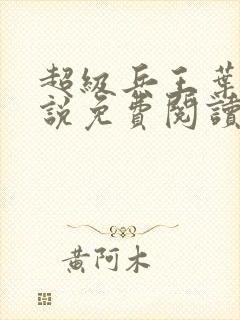 超級兵王葉
說免費閱讀
黃阿木